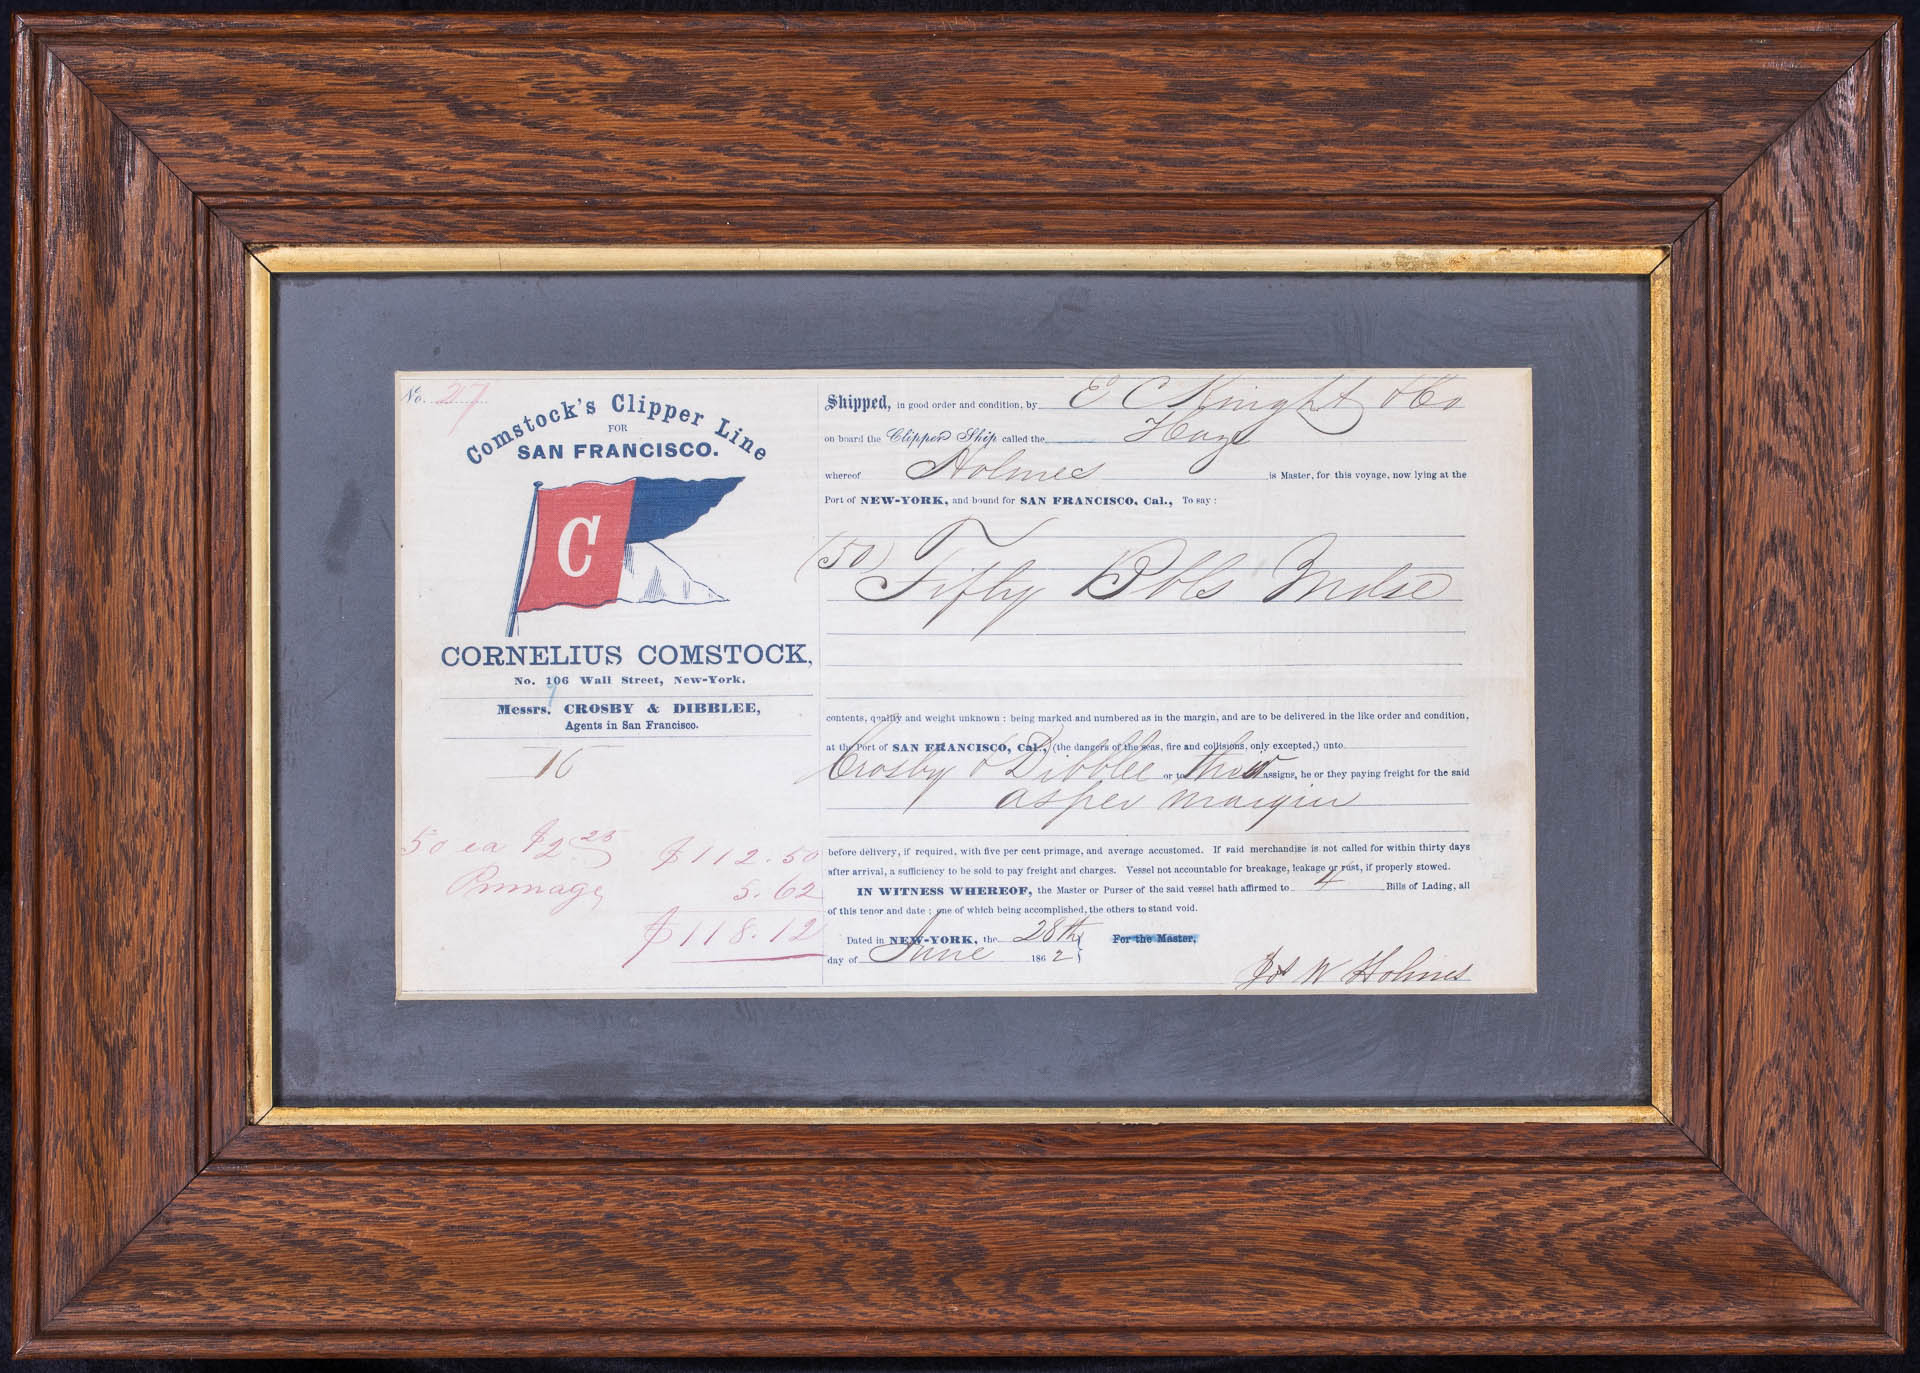 No. 27
Comstock's Clipper Line
FOR
SAN FRANCISCO.
C
CORNELIUS COMSTOCK,
No. 106 Wall Street, New-York.
Messrs. CROSBY & DIBBLEE,
Agents in San Francisco.
50 ea $2 25 $112.50
Primage 5.62
$118.12
Shipped, in good order and condition, by E C Knight & Co
on board the Clipper Ship called the
whereof Holmes is Master, for this voyage, now lying at the
Port of NEW-YORK, and bound for SAN FRANCISCO, Cal., To say:
(50) Fifty Bbls
contents, quality and weight unknown: being marked and numbered as in the margin, and are to be delivered in the like order and condition,
at the Port of SAN FRANCISCO, Cal., (the dangers of the seas, fire and collisions, only excepted,) unto
Crosby & Dibblee or to their assigns, he or they paying freight for the said
as per margin
before delivery, if required, with five per cent primage, and average accustomed. If said merchandise is not called for within thirty days
after arrival, a sufficiency to be sold to pay freight and charges. Vessel not accountable for breakage, leakage or rust, if properly stowed.
IN WITNESS WHEREOF, the Master or Purser of the said vessel hath affirmed to 4 Bills of Lading, all
of this tenor and date; one of which being accomplished, the others to stand void.
Dated in NEW-YORK, the 28th } For the Master,
day of June 1862 }
Jos W Holmes